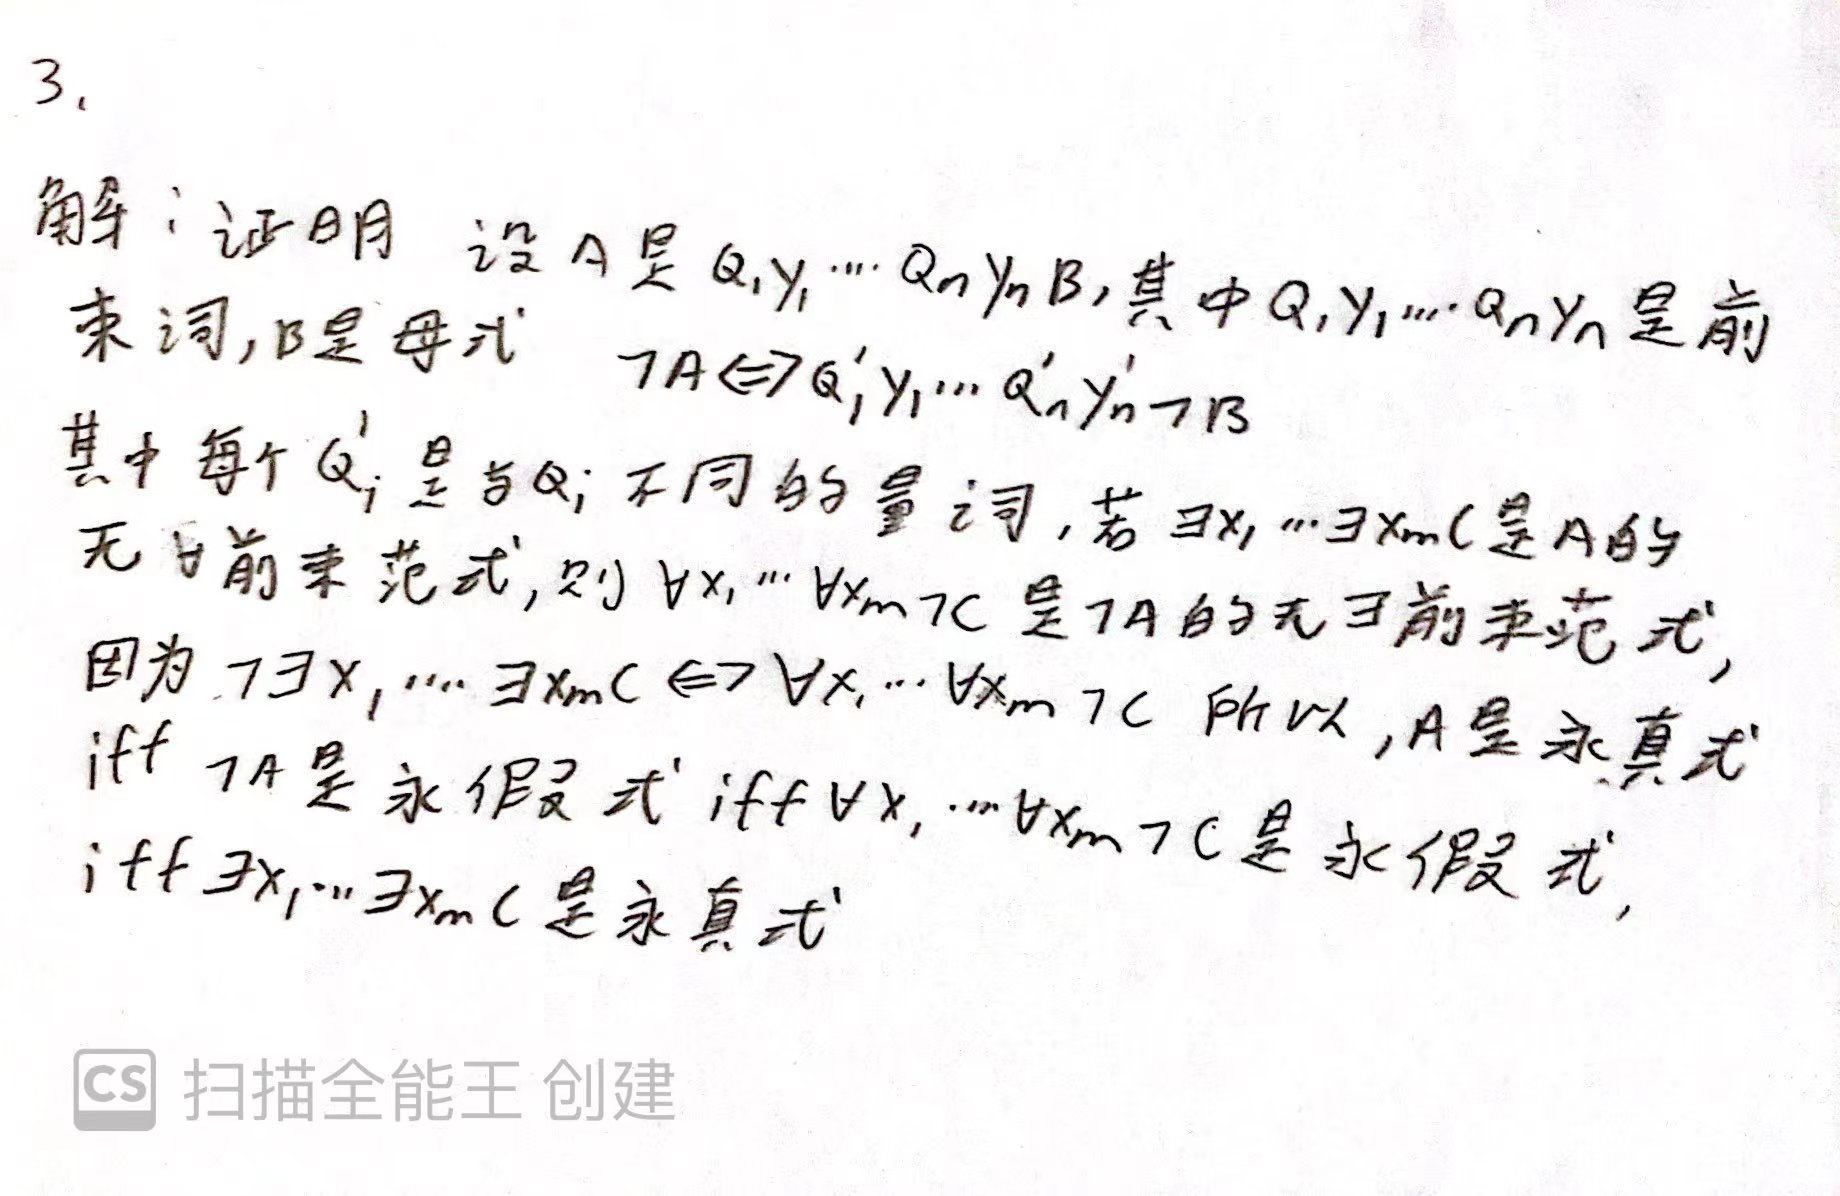 3.
解：证明 设A是Q₁y₁…QₙyₙB,其中Q₁y₁…Qₙyₙ是前
束词,B是母式 ¬A⇔Q₁'y₁…Qₙ'yₙ'¬B
其中每个Qᵢ'是与Qᵢ不同的量词,若∃x₁…∃xₘC是A的
无∀前束范式,则∀x₁…∀xₘ¬C是¬A的无∃前束范式,
因为¬∃x₁…∃xₘC⇔∀x₁…∀xₘ¬C 所以,A是永真式
iff ¬A是永假式 iff ∀x₁…∀xₘ¬C是永假式,
iff ∃x₁…∃xₘC是永真式
CS 扫描全能王 创建